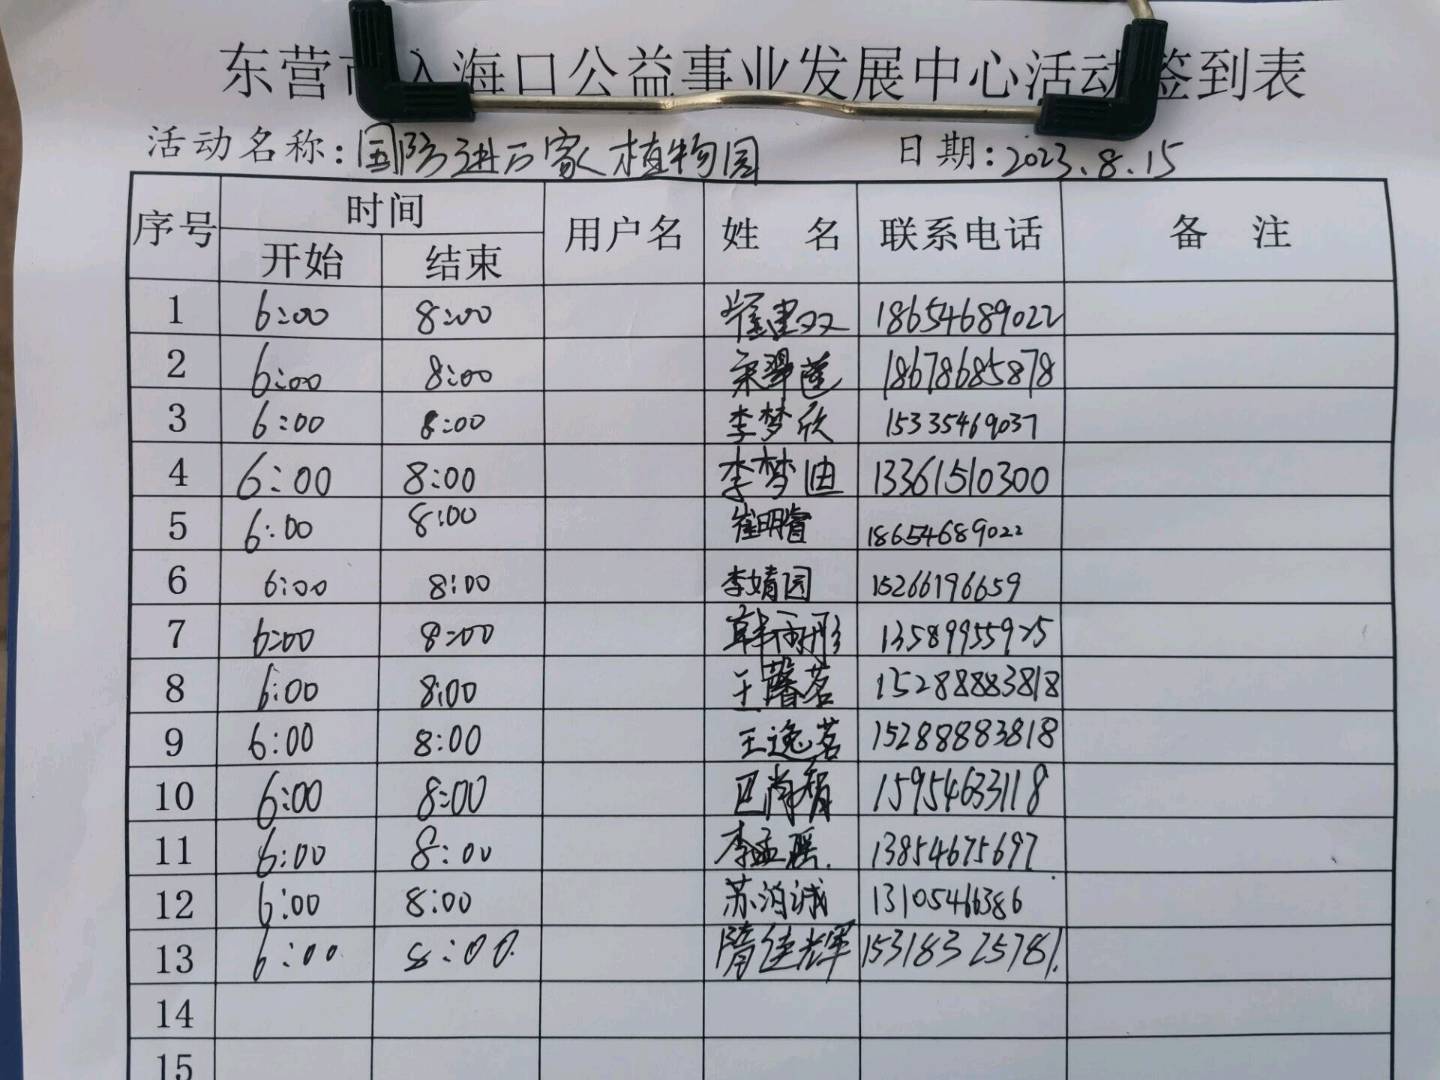 东营市入海口公益事业发展中心活动签到表
活动名称:国防进万家植物园 日期:2023.8.15
序号 时间 用户名 姓 名 联系电话 备 注
开始 结束
1 6:00 8:00 崔建双 18654689022
2 6:00 8:00 宋翠莲 18678685878
3 6:00 8:00 李梦欣 15335469037
4 6:00 8:00 李梦迪 13361510300
5 6:00 8:00 崔明睿 18654689022
6 6:00 8:00 李婧园 15266196659
7 6:00 8:00 韩雨彤 13589955925
8 6:00 8:00 王馨茗 15288883818
9 6:00 8:00 王逸茗 15288883818
10 6:00 8:00 巴尚智 15954633118
11 6:00 8:00 李孟瑶 13854675697
12 6:00 8:00 苏泊诚 13105466386
13 6:00 8:00 隋佳辉 15318325781
14
15